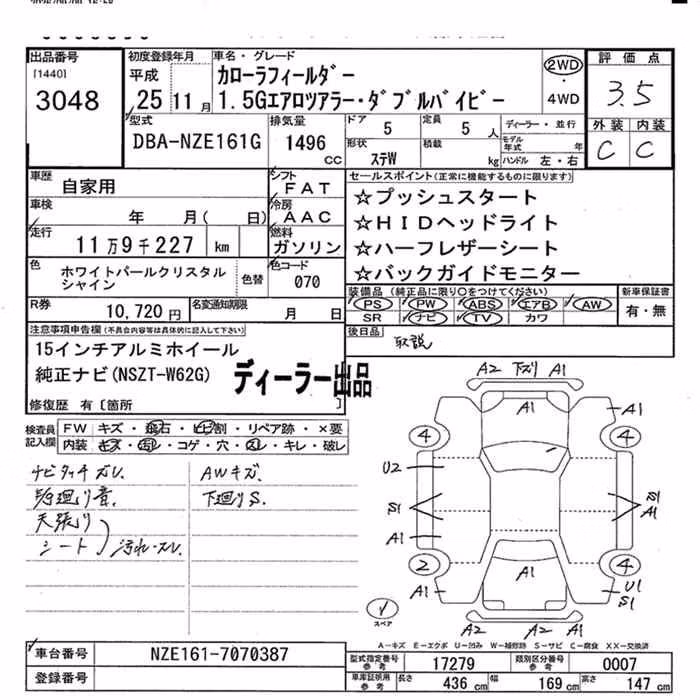 出品番号
[1440]
3048
初度登録年月
平成
25 11 月
車名・グレード
カローラフィールダー
1.5Gエアロツアラー・ダブルバイビー
2WD
・
4WD
評価点
3.5
外装 内装
C C
型式
DBA-NZE161G
排気量
1496
CC
ドア
5
定員
5 人
形状
ステW
積載
kg
ディーラー・並行
モデル年式 年
ハンドル 左・右
車歴
自家用
シフト
FAT
車検
年 月( 日)
冷房
AAC
走行
11万9千227 km
燃料
ガソリン
色
ホワイトパールクリスタル
シャイン
色替
色コード
070
R券
10,720円
名変通知期限
月 日
セールスポイント(正常に機能するものに限ります)
☆プッシュスタート
☆HIDヘッドライト
☆ハーフレザーシート
☆バックガイドモニター
装備品(純正品に限り○をつけてください)
PS PW ABS エアB AW
SR ナビ TV カワ
新車保証書
有・無
後日品
取説
注意事項申告欄(不具合内容等は具体的に記入して下さい)
15インチアルミホイール
純正ナビ(NSZT-W62G)
ディーラー出品
修復歴 有〔箇所 〕
検査員
記入欄
FW キズ・飛石・ヒビ割・リペア跡・×要
内装 キズ・汚レ・コゲ・穴・スレ・キレ・破レ
ナビタッチズレ
天張り
シート
汚れ・スレ
AWキズ
下廻りS.
A2 下ズリ A1
A1
A1
4
4
U2
S1
S1
A1
A1
2
4
A1
A1
U1
S1
A2
A2
A1
スペア
A-キズ E-エクボ U-凹み W-補修跡 S-サビ C-腐食 XX-交換済
車台番号
NZE161-7070387
登録番号
型式指定番号
参考
17279
類別区分番号
参考
0007
車庫証明用
参考
長さ
436 cm
幅
169 cm
高さ
147 cm